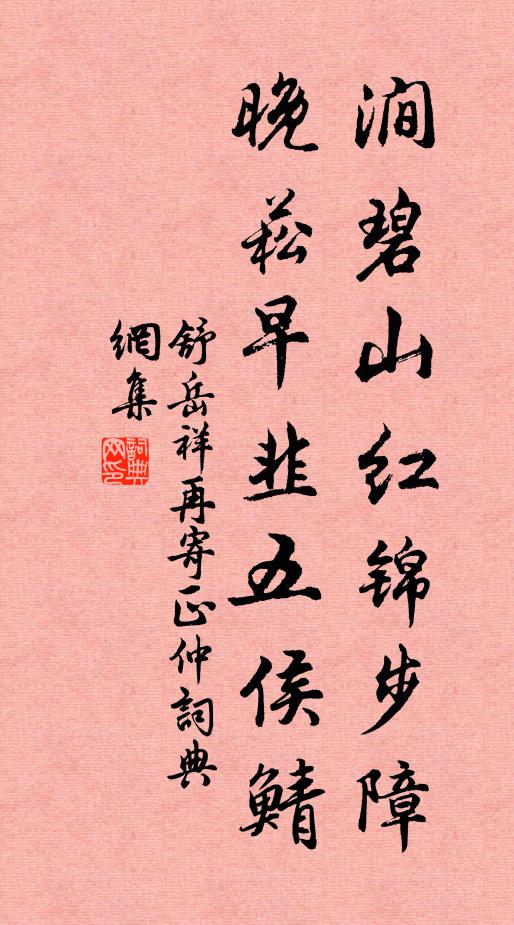 澗碧山红锦步障
晚菘早韭五侯鯖
舒岳祥再寄正仲詞典
網集
詞典
网印